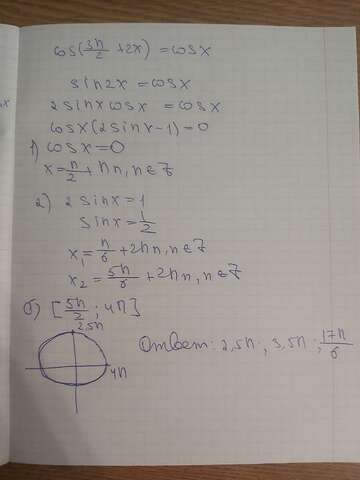 cos(3π/2 + 2x) = cosx
sin2x = cosx
2sinxcosx = cosx
cosx(2sinx-1)=0
1) cosx=0
x=π/2+πn, n∈Z
2) 2sinx=1
sinx=1/2
x₁=π/6+2πn, n∈Z
x₂=5π/6+2πn, n∈Z
б) [5π/2; 4π]
2,5π
4π
Ответ: 2,5π; 3,5π; 17π/6